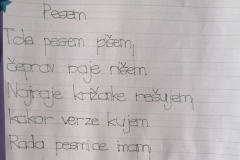 Pesem
Tole pesem pišem,
čeprav raje rišem.
Najraje križanke rešujem,
kakor verze kujem.
Rada pesmice imam,